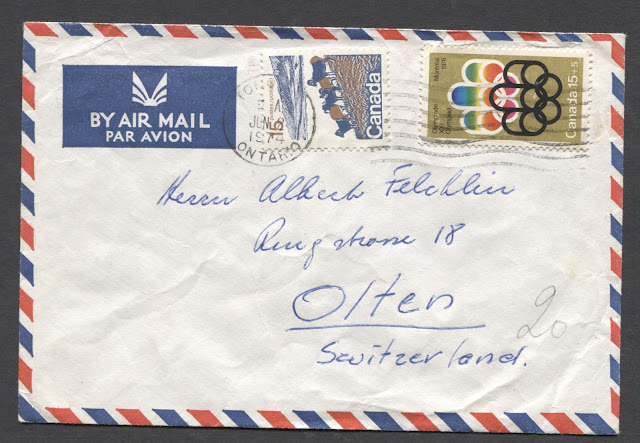 BY AIR MAIL
PAR AVION
ONTARIO
15
Canada
Montréal 1976
Olympiade XXI Olympiad
Canada 15+5
Herrn Albert Felchlin
Ringstrasse 18
Olten
Switzerland.
20